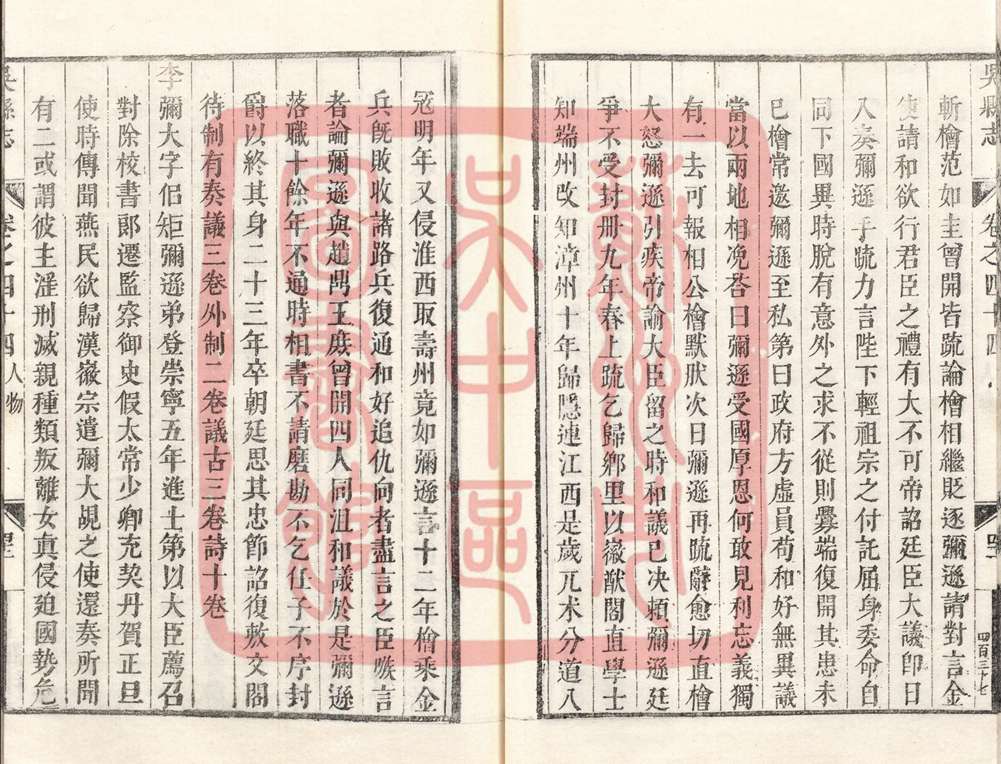 吳縣志
卷之四十四
四百三十七
斬檜范如圭曾開皆疏論檜相繼貶逐彌遜請對言金
使請和欲行君臣之禮有大不可帝詔廷臣大議卽日
入奏彌遜手疏力言陛下輕祖宗之付託屈身委命自
同下國異時脫有意外之求不從則釁端復開其患未
已檜常邀彌遜至私第曰政府方虛員苟和好無異議
當以兩地相凂荅曰彌遜受國厚恩何敢見利忘義獨
有一去可報相公檜默肰次日彌遜再疏辭愈切直檜
大怒彌遜引疾帝諭大臣留之時和議已決頫彌遜廷
爭不受封册九年春上疏乞歸鄉里以徽猷閣直學士
知端州改知漳州十年歸隱連江西是歲兀朮分道入
冦明年又侵淮西取壽州竟如彌遜言十二年檜乘金
兵旣敗收諸路兵復通和好追仇向者盡言之臣嗾言
者論彌遜與趙鼎王庶曾開四人同沮和議於是彌遜
落職十餘年不通時相書不請磨勘不乞任子不序封
爵以終其身二十三年卒朝廷思其忠節詔復敷文閣
待制有奏議三卷外制二卷議古三卷詩十卷
李彌大字佀矩彌遜弟登崇寧五年進士第以大臣薦召
對除校書郞遷監察御史假太常少卿充契丹賀正旦
使時傳聞燕民欲歸漢徽宗遣彌大覘之使還奏所聞
有二或謂彼主淫刑滅親種類叛離女真侵廹國勢危
吳縣志
卷之四十四
人物
蘇州市
吳中區
圖書館